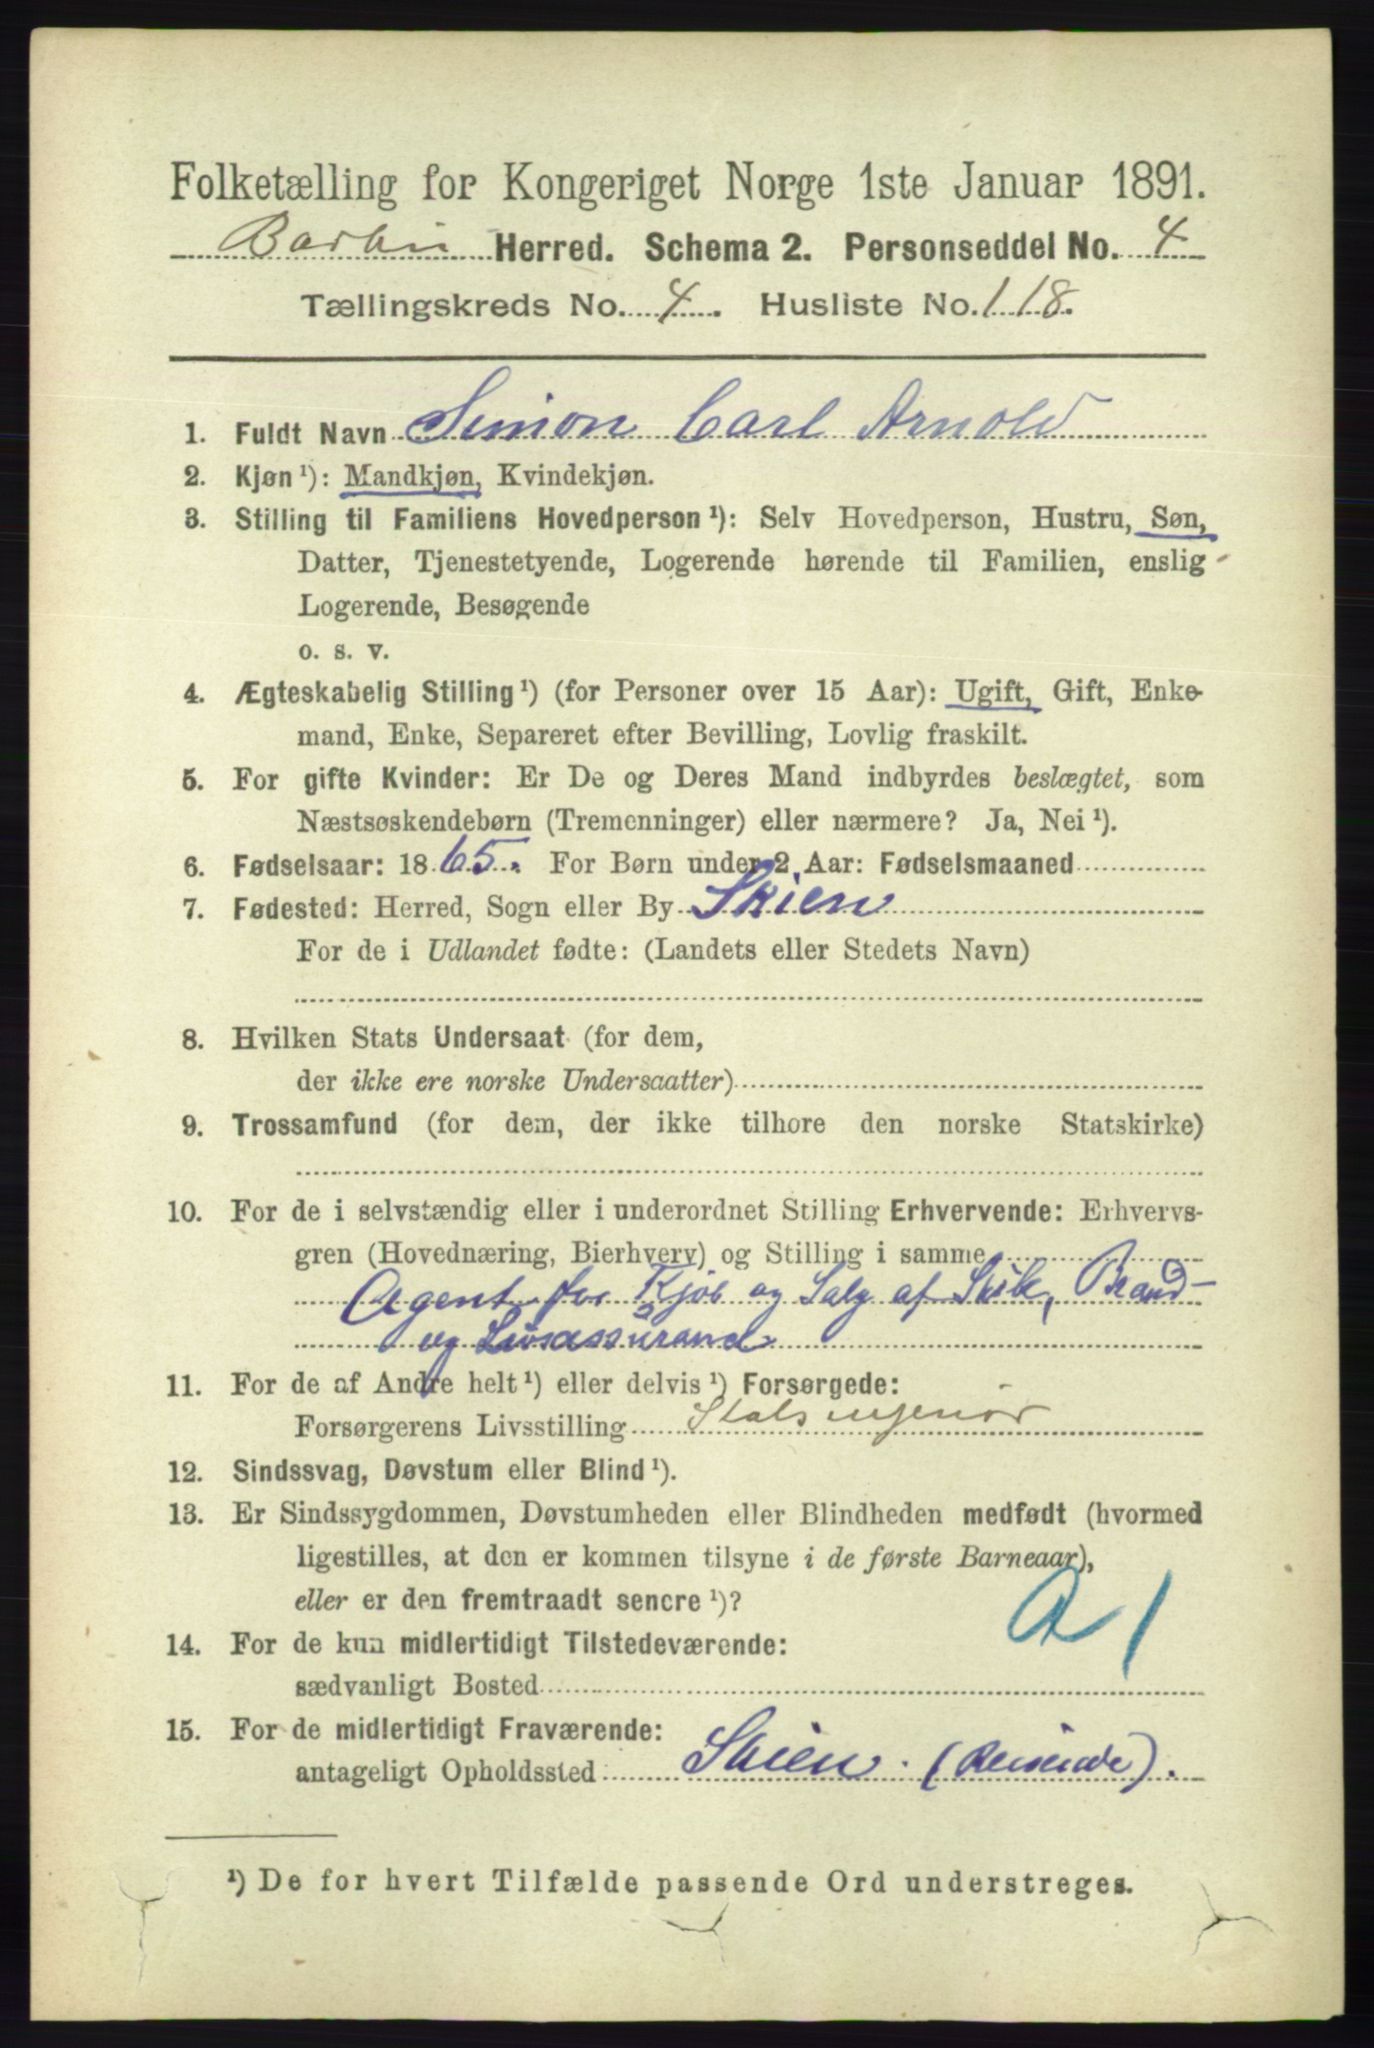 Folketælling for Kongeriget Norge 1ste Januar 1891.
Barbu Herred. Schema 2. Personseddel No. 4
Tællingskreds No. 4. Husliste No. 118.
1. Fuldt Navn Simon Carl Arnold
2. Kjøn ¹): Mandkjøn, Kvindekjøn.
3. Stilling til Familiens Hovedperson ¹): Selv Hovedperson, Hustru, Søn,
Datter, Tjenestetyende, Logerende hørende til Familien, enslig
Logerende, Besøgende
o. s. v.
4. Ægteskabelig Stilling ¹) (for Personer over 15 Aar): Ugift, Gift, Enke-
mand, Enke, Separeret efter Bevilling, Lovlig fraskilt.
5. For gifte Kvinder: Er De og Deres Mand indbyrdes beslægtet, som
Næstsøskendebørn (Tremenninger) eller nærmere? Ja, Nei ¹).
6. Fødselsaar: 1865. For Børn under 2 Aar: Fødselsmaaned
7. Fødested: Herred, Sogn eller By Skien
For de i Udlandet fødte: (Landets eller Stedets Navn)
8. Hvilken Stats Undersaat (for dem,
der ikke ere norske Undersaatter)
9. Trossamfund (for dem, der ikke tilhøre den norske Statskirke)
10. For de i selvstændig eller i underordnet Stilling Erhvervende: Erhvervs-
gren (Hovednæring, Bierhverv) og Stilling i samme
Agent for Kjøb og Salg af Skibe, Brand-
og Livsassurance
11. For de af Andre helt ¹) eller delvis ¹) Forsørgede:
Forsørgerens Livsstilling Statsingeniør
12. Sindssvag, Døvstum eller Blind ¹).
13. Er Sindssygdommen, Døvstumheden eller Blindheden medfødt (hvormed
ligestilles, at den er kommen tilsyne i de første Barneaar),
eller er den fremtraadt senere ¹)?
14. For de kun midlertidigt Tilstedeværende:
sædvanligt Bosted
15. For de midlertidigt Fraværende:
antageligt Opholdssted Skien. (Reisende).
¹) De for hvert Tilfælde passende Ord understreges.